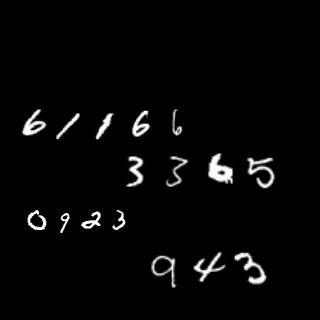 61166
3365
0923
943